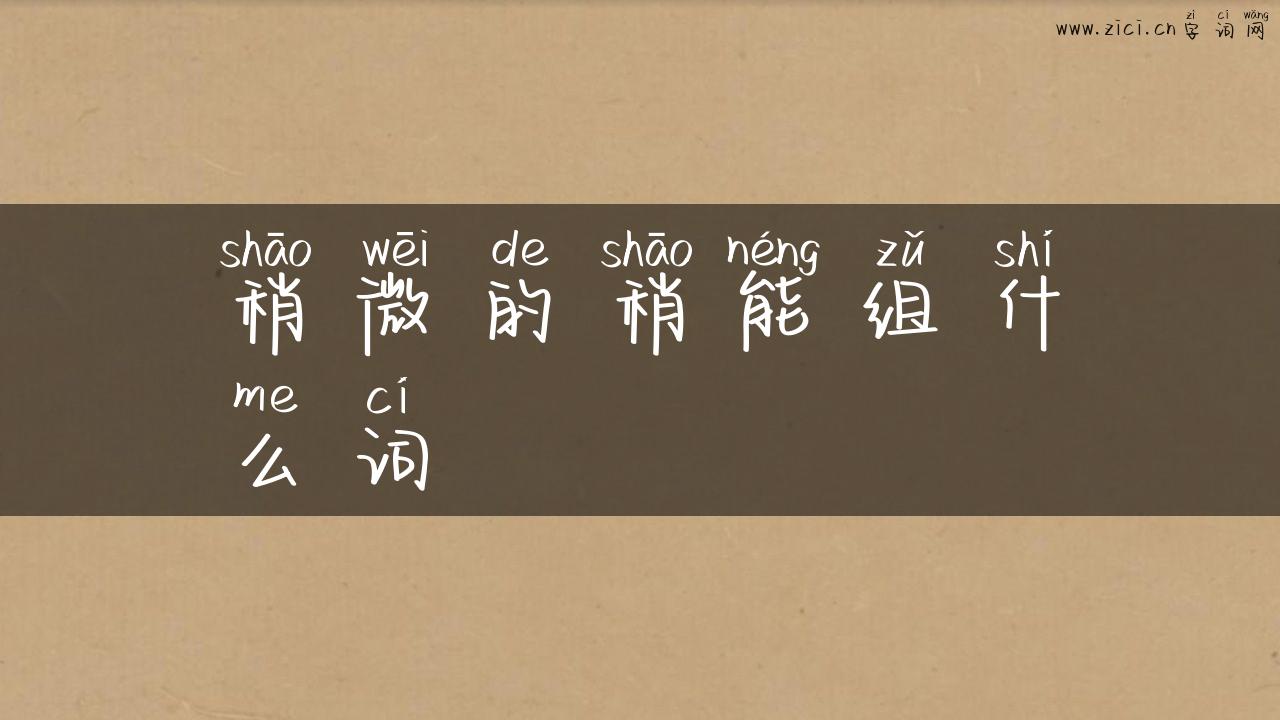 zì cí wǎng
www.zici.cn 字词网
shāo wēi de shāo néng zǔ shí
稍微的稍能组什
me cí
么词